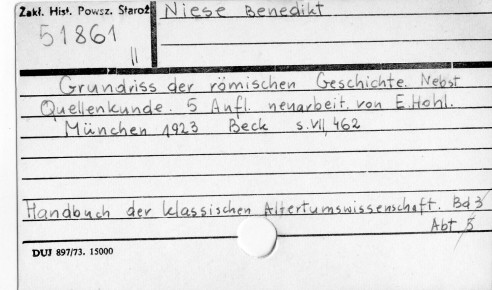 Zakł. Hist. Powsz. Staroż.
Niese Benedikt
51861
II
Grundriss der römischen Geschichte. Nebst
Quellenkunde. 5 Anfl. neuarbeit. von E. Hohl.
München 1923 Beck s. VII, 462
Handbuch der klassischen Altertumswissenschaft. Bd 3
Abt 5
DUJ 897/73. 15000